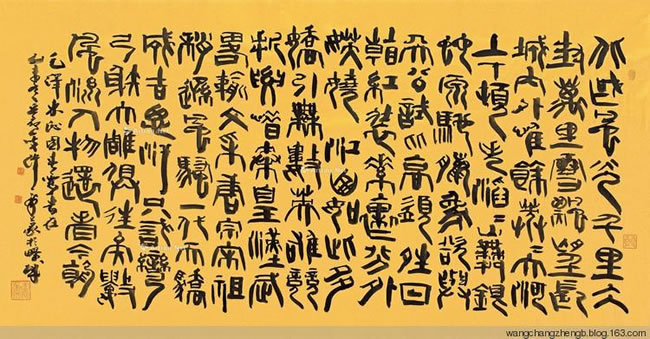 北國風光千里冰
封萬里雪飄望長
城內外唯餘莽莽大河
上下頓失滔滔山舞銀
蛇原馳蠟象欲與
天公試比高須晴日
看紅裝素裹分外
妖嬈江山如此多
嬌引無數英雄競
折腰惜秦皇漢武
略輸文采唐宗宋祖
稍遜風騷一代天驕
成吉思汗只識彎
弓射大雕俱往矣數
風流人物還看今朝
毛澤東沁園春雪
wangchangzhengb.blog.163.com